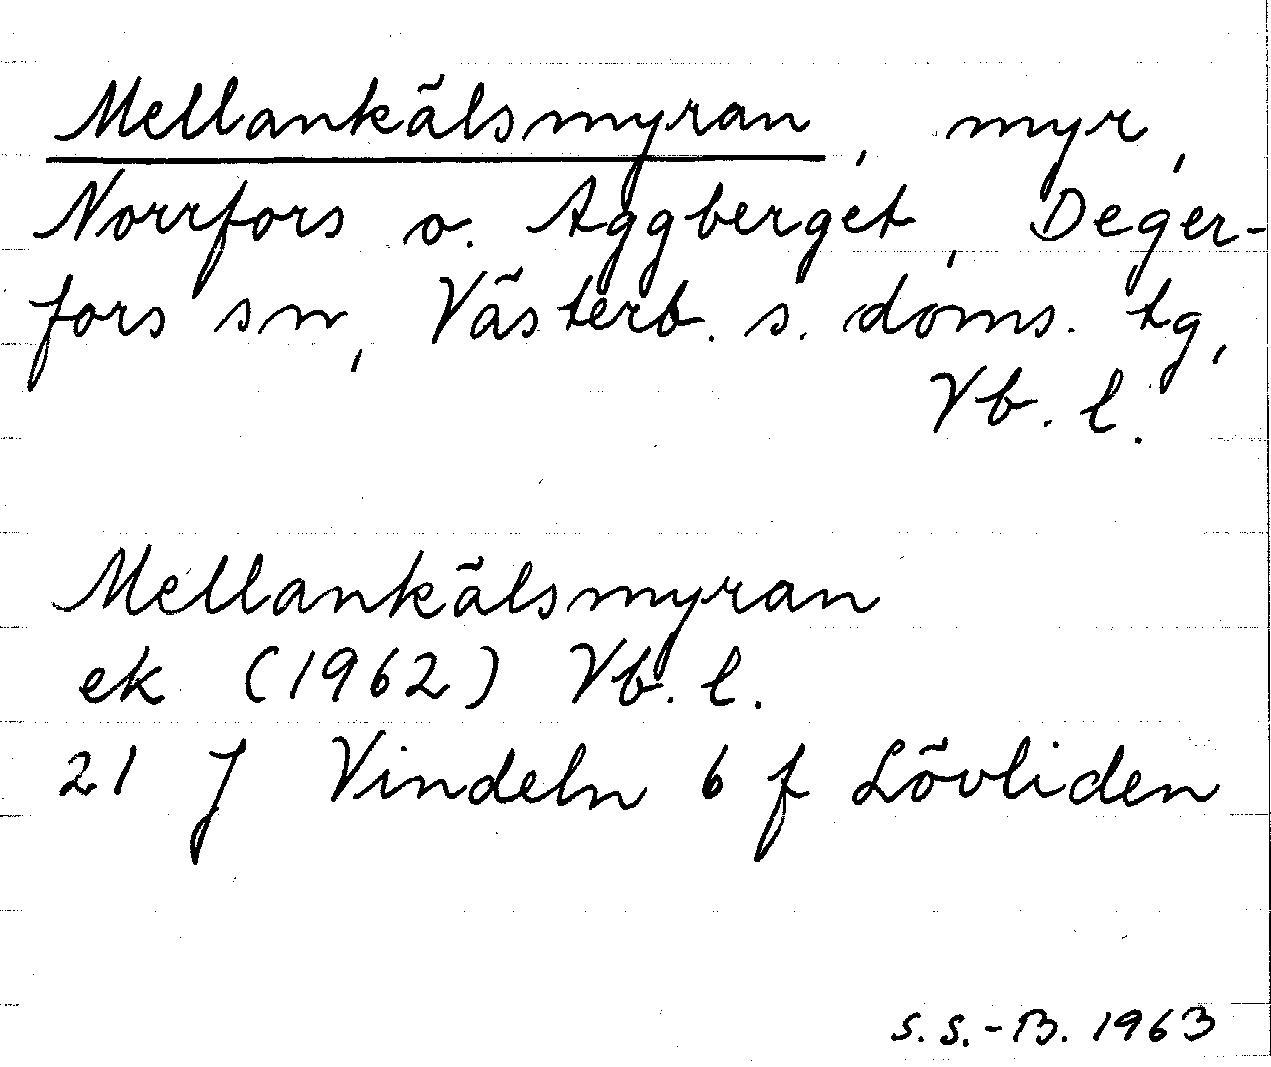 Mellankälsmyran, myr,
Norrfors o. Aggberget, Deger-
fors sn, Västerb. s. doms. tg,
Vb. l.
Mellankälsmyran
ek (1962) Vb. l.
21 J Vindeln 6 f Lövliden
S. S.-B. 1963